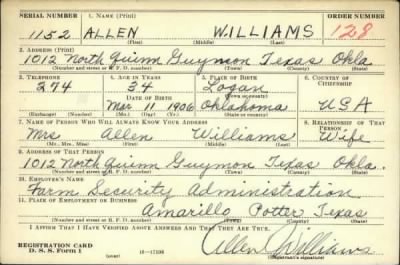 SERIAL NUMBER 1. NAME (Print) ORDER NUMBER
1152 ALLEN WILLIAMS 128
(First) (Middle) (Last)
2. ADDRESS (Print)
1012 North Quinn Guymon Texas Okla
(Number and street or R. F. D. number) (Town) (County) (State)
3. TELEPHONE 4. AGE IN YEARS 5. PLACE OF BIRTH 6. COUNTRY OF CITIZENSHIP
274 34 Logan
DATE OF BIRTH (Town or county)
Mar 11 1906 Oklahoma USA
(Exchange) (Number) (Mo.) (Day) (Yr.) (State or country)
7. NAME OF PERSON WHO WILL ALWAYS KNOW YOUR ADDRESS 8. RELATIONSHIP OF THAT PERSON
Mrs Allen Williams Wife
(Mr., Mrs., Miss) (First) (Middle) (Last)
9. ADDRESS OF THAT PERSON
1012 North Quinn Guymon Texas Okla.
(Number and street or R. F. D. number) (Town) (County) (State)
10. EMPLOYER'S NAME
Farm Security Administration
11. PLACE OF EMPLOYMENT OR BUSINESS
Amarillo Potter Texas
(Number and street or R. F. D. number) (Town) (County) (State)
I AFFIRM THAT I HAVE VERIFIED ABOVE ANSWERS AND THAT THEY ARE TRUE.
REGISTRATION CARD
D. S. S. Form 1 16—17105 Allen Williams
(Registrant's signature)